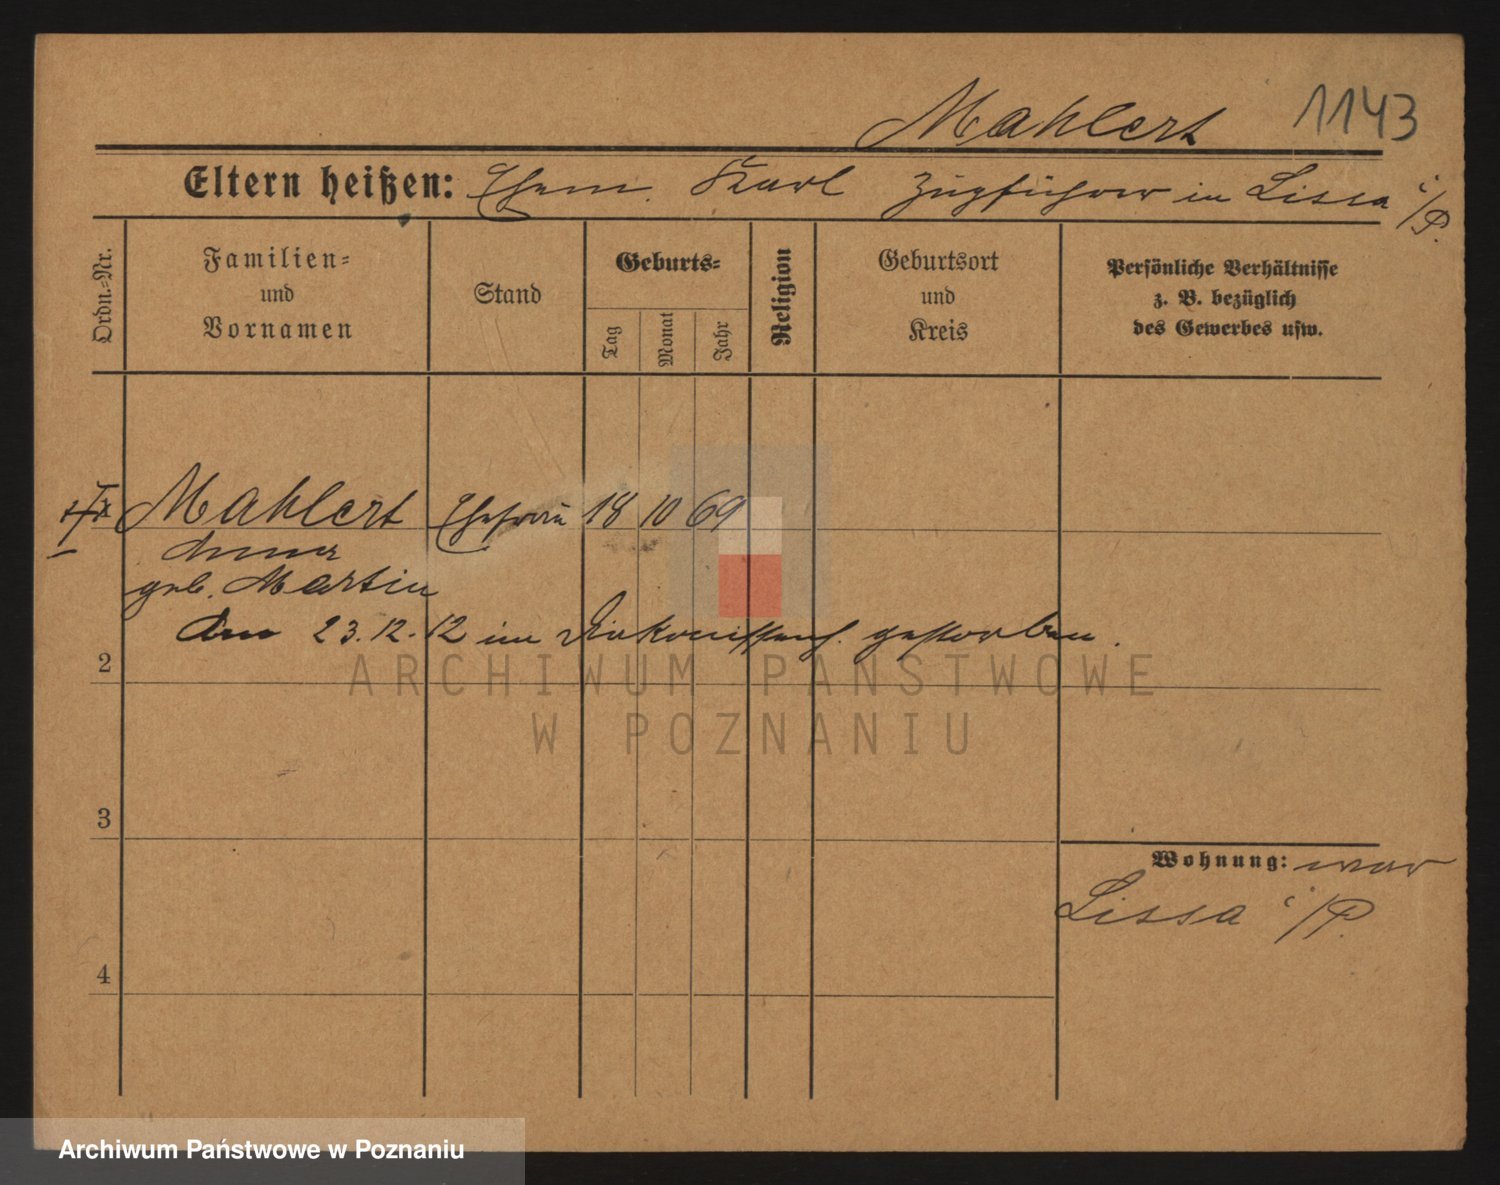 Mahlert 1143
Eltern heißen: Ehem. Karl Zugführer in Lissa i/P.
Ordn.-Nr.
Familien-
und
Vornamen
Stand
Geburts-
Tag
Monat
Jahr
Religion
Geburtsort
und
Kreis
Persönliche Verhältnisse
z. B. bezüglich
des Gewerbes usw.
Mahlert Ehefrau 18 10 69
Anna
geb. Martin
Am 23.12.12 im Diakonissenh. gestorben.
2
3
Wohnung: war
Lissa i/P.
4
ARCHIWUM PAŃSTWOWE
W POZNANIU
Archiwum Państwowe w Poznaniu